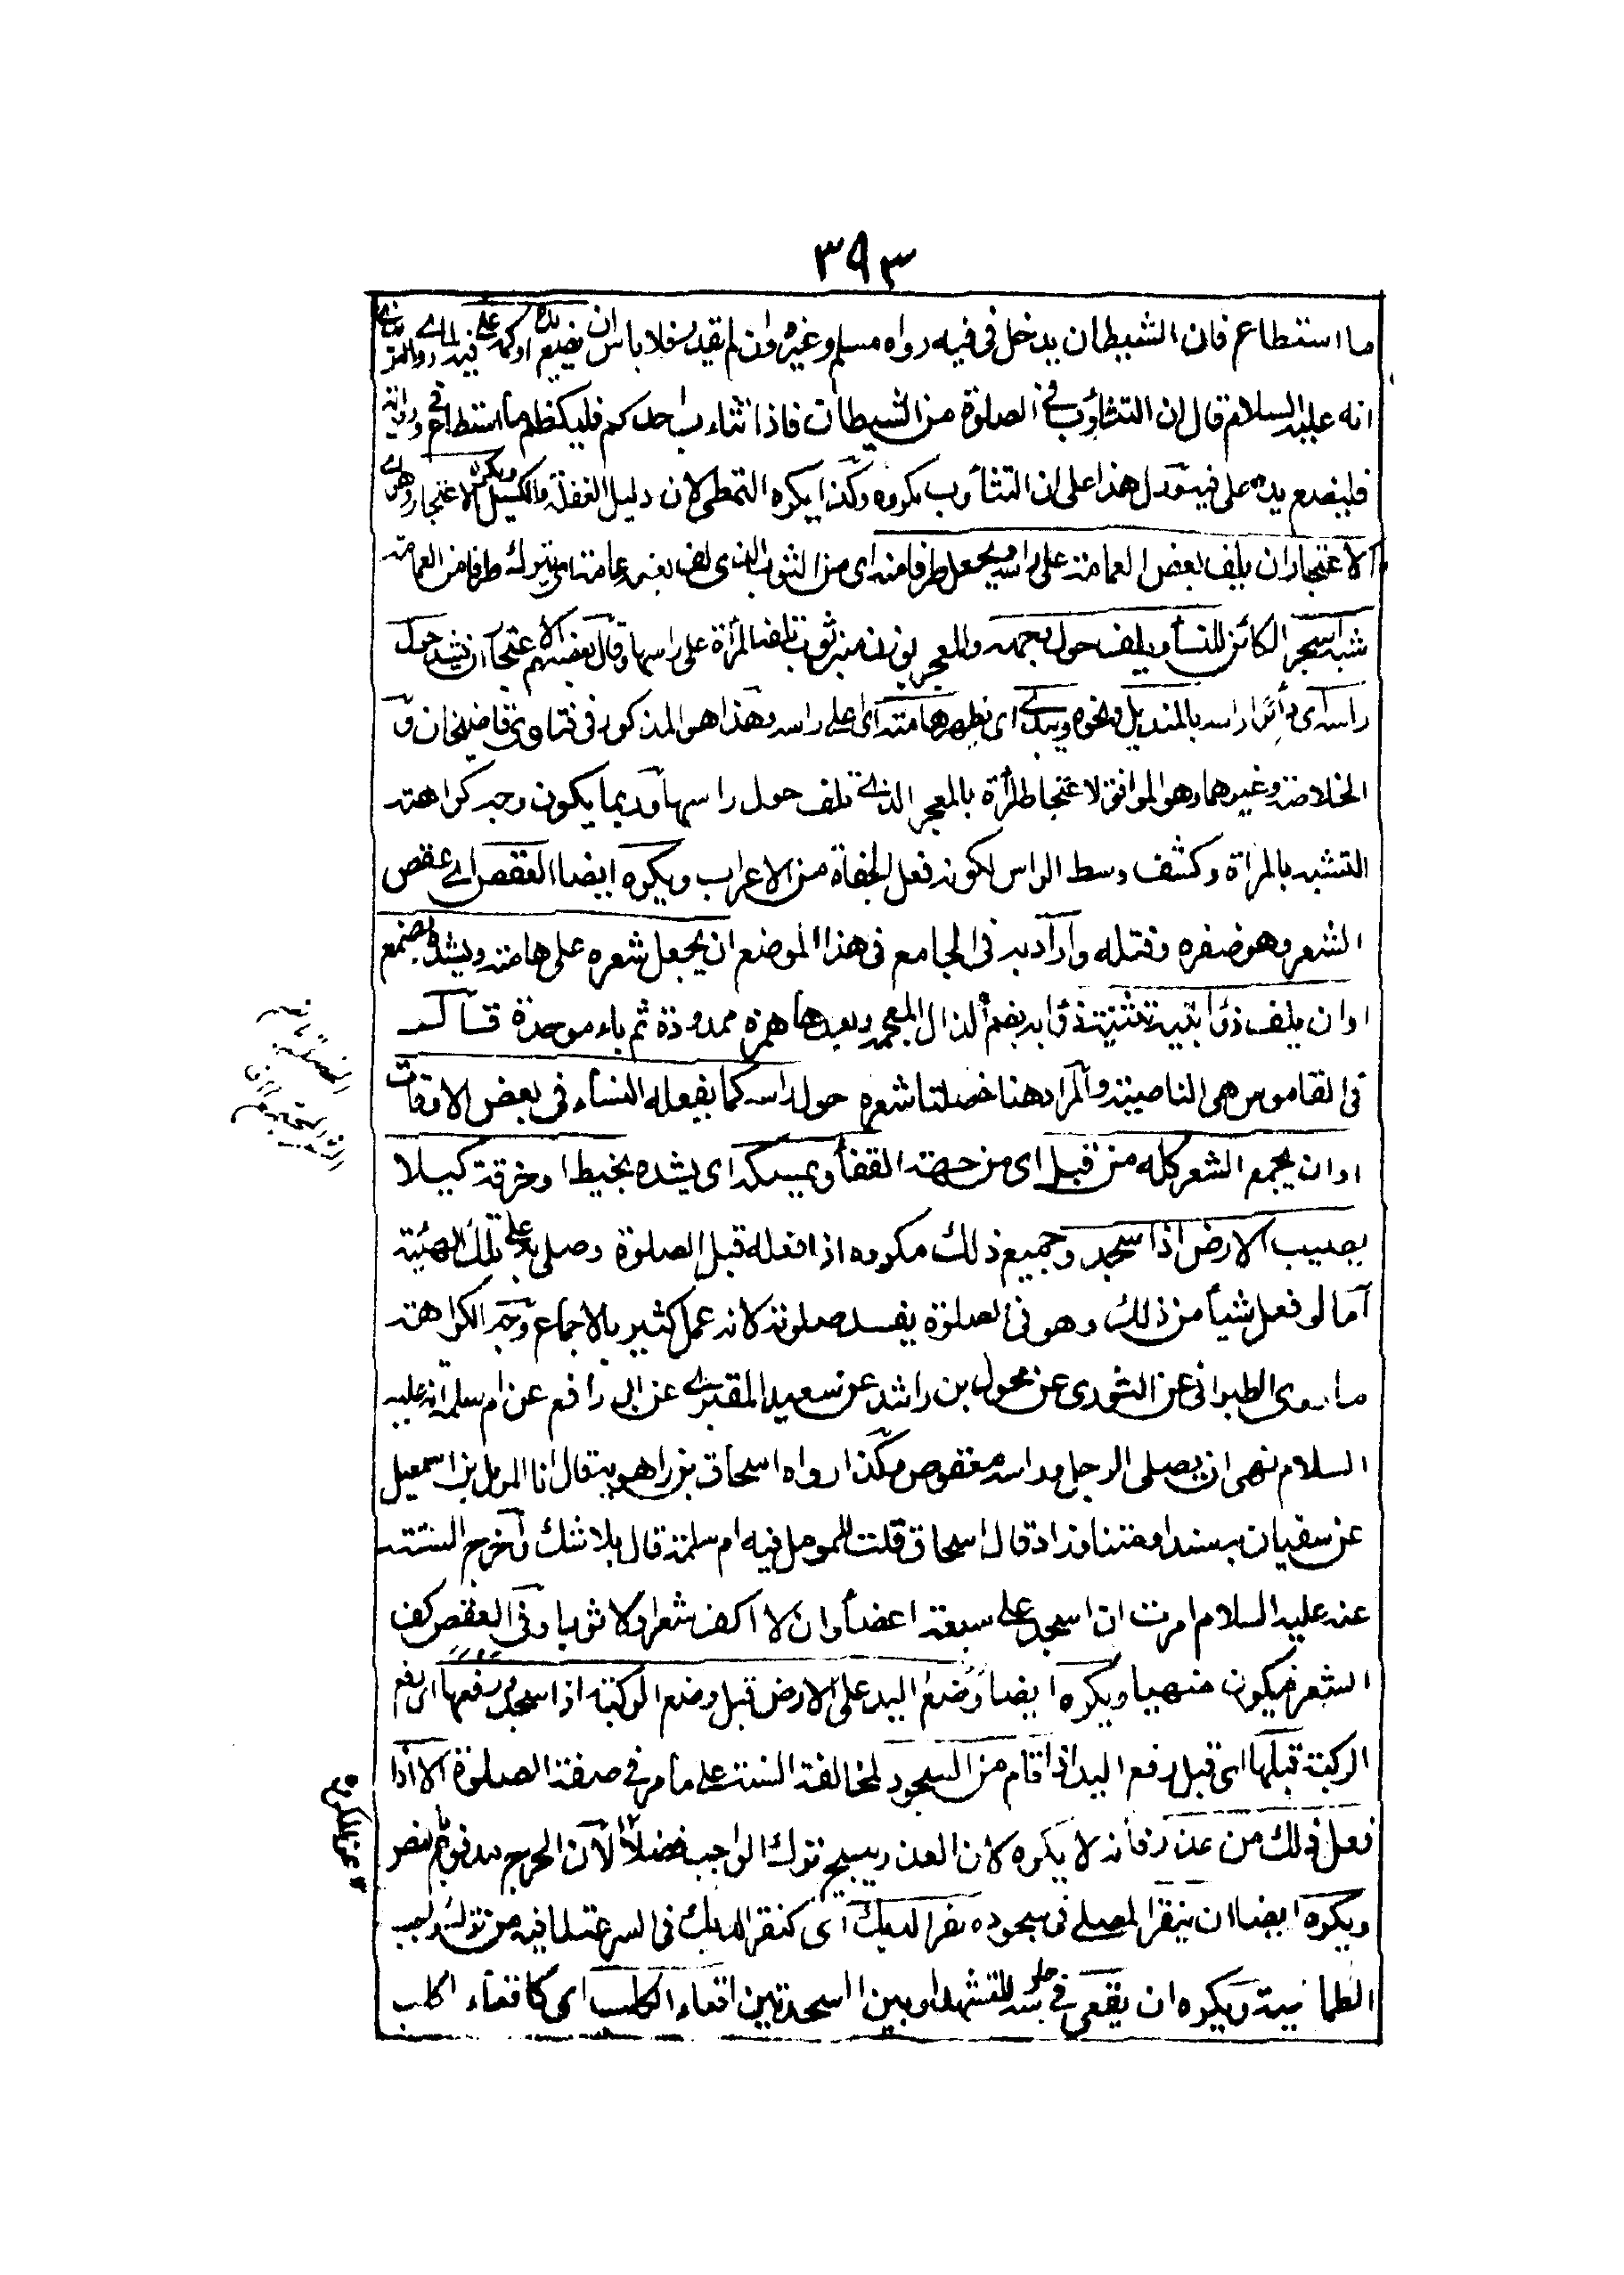 ٣٩٣
ما استطاع فان الشيطان يدخل فى فيه رواه مسلم وغيره وان لم يقدر فلا باس ان يضع يده اوكمه على فيه لما روى الترمذى
انه عليه السلام قال ان التثاؤب فى الصلوة من الشيطان فاذا تثاءب احدكم فليكظم ما استطاع وفى رواية
فليضع يده على فيه ودل هذا على ان التثاؤب مكروه وكذا يكره التمطى لان دليل الغفلة والكسل ويكره الاعتجار وهو اى
الاعتجار ان يلف بعض العمامة على راسه ويجعل طرفا منه اى من الثوب الذى لف بعضه عمامة اى يترك طرفا من العمامة
شبه المعجر الكائن للنسأ ويلف حول وجهه والمعجر بوزن منبر ثوب تلفه المرأة على راسها وقال بعضهم الاعتجار ان يشد حول
راسه اى دائر راسه بالمنديل ونحوه ويبدى اى يظهر هامته اى اعلى راسه وهذا هو المذكور فى فتاوى قاضيخان و
الخلاصة وغيرهما وهو الموافق لاعتجار المرأة بالمعجر الذى تلف حول راسها وربما يكون وجه كراهته
التشبه بالمرأة وكشف وسط الراس لكونه فعل الجفاة من الاعراب ويكره ايضا العقص اى عقص
الشعر وهو ضفره وفتله واراد به فى الجامع فى هذا الموضع ان يجعل شعره على هامته ويشده بصمغ
اوان يلف ذؤابتيه تثنية ذؤابه بضم الذال المعجمه وبعدها همزة ممدودة ثم باء موحدة قال
فى القاموس هى الناصية والمراد هنا خصلتا شعره حول راسه كما يفعله النساء فى بعض الاوقات
اوان يجمع الشعر كله من قبل اى من جهة القفأ ويمسكه اى يشده بخيط او خرقة كيلا
يصيب الارض اذا سجد وجميع ذلك مكروه اذا فعله قبل الصلوة وصلى به على تلك الهيئة
اما لو فعل شيأ من ذلك وهو فى الصلوة يفسد صلوته لانه عمل كثير بالاجماع وجه الكراهة
ما روى الطبرانى عن الثورى عن مخول بن راشد عن سعيد المقبرى عن ابى رافع عن ام سلمة انه عليه
السلام نهى ان يصلى الرجل وراسه معقوص وكذا رواه اسحاق بن راهويه قال انا المومل بن اسمعيل
عن سفيان به سندا ومتنا وزاد قال اسحاق قلت للمومل فيه ام سلمة قال بلا شك واخرج الستة
عنه عليه السلام امرت ان اسجد على سبعة اعضأ وان لا اكف شعرا ولا ثوبا وفى العقص كف
الشعر فيكون منهيا ويكره ايضا وضع اليد على الارض قبل وضع الركبة اذا سجد ورفعها اى رفع
الركبة قبلها اى قبل رفع اليد اذا قام من السجود لمخالفة السنة على ما مر فى صفة الصلوة الا اذا
فعل ذلك من عذر فانه لا يكره لان العذر يبيح ترك الواجب فضلا لان الحرج مدفوع بالنص
ويكره ايضا ان ينقر المصلى فى سجوده نقر الديك اى كنقر الديك فى السرعة لما فيه من ترك واجب
الطمانينة ويكره ان يقعى فى جلوسه للتشهد اوبين السجدتين اقعاء الكلب اى كاقعاء الكلب